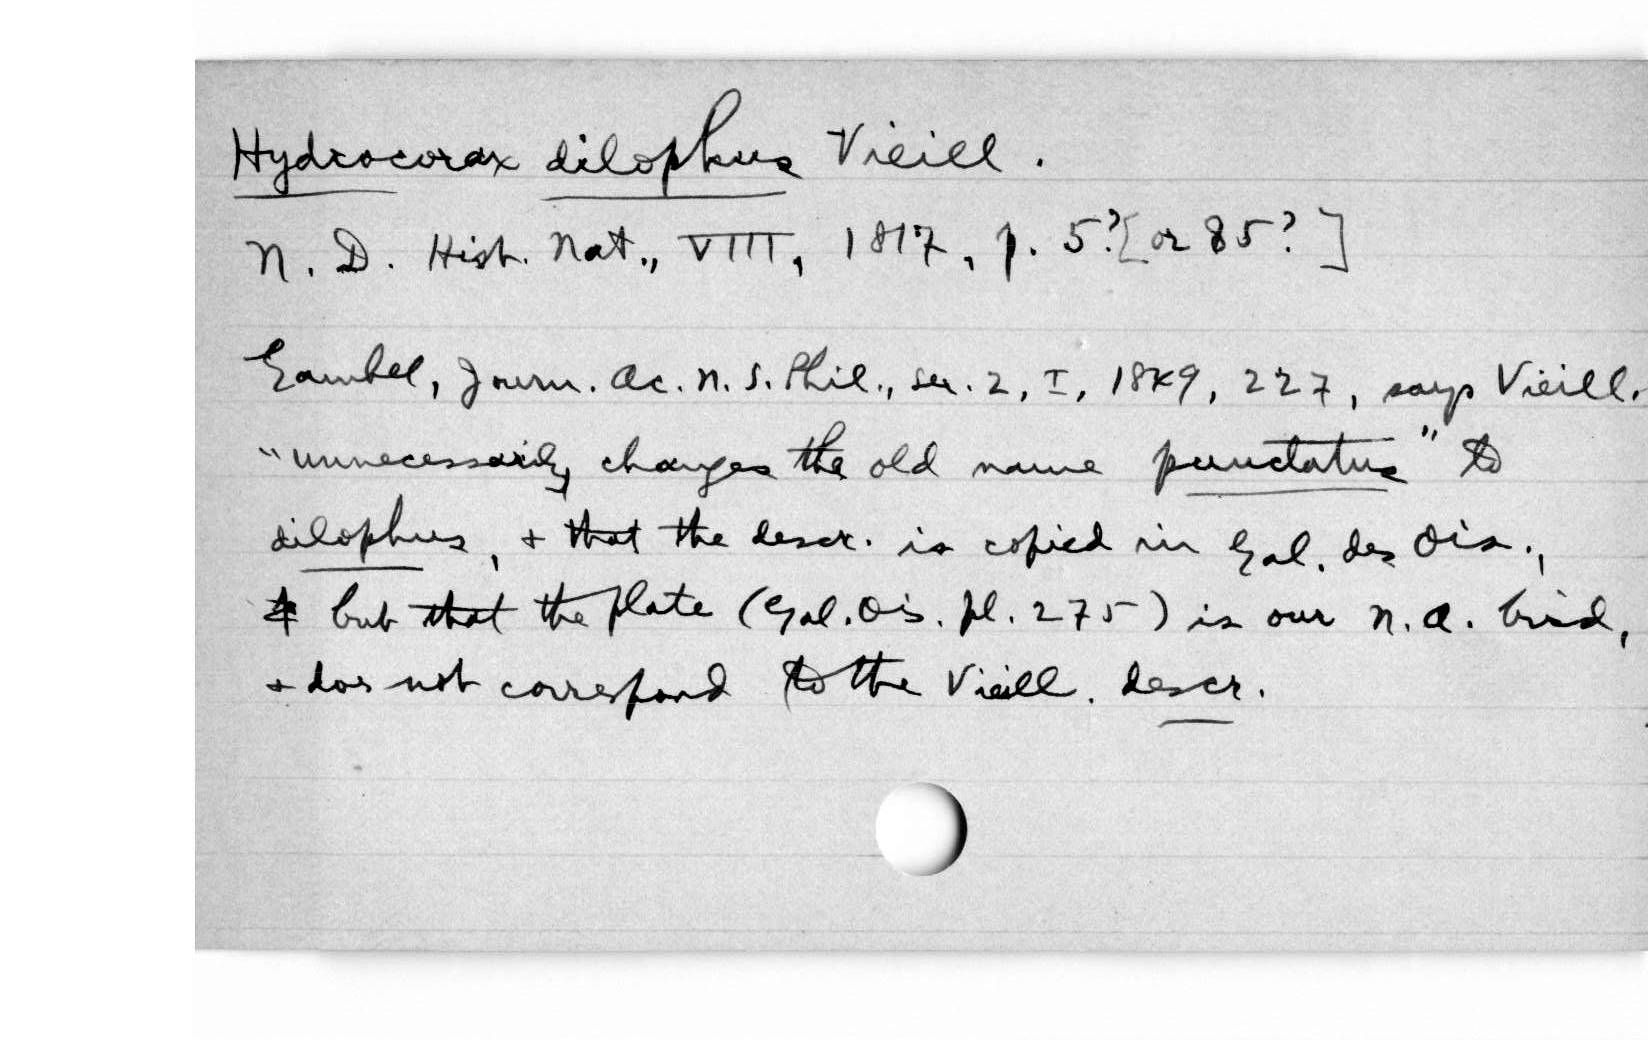 Hydrocorax dilophus Vieill.
N. D. Hist. Nat., VIII, 1817, p. 5?[or 85?]
Gambel, Journ. Ac. N. S. Phil., ser. 2, I, 1849, 227, says Vieill.
"unnecessarily changes the old name punctatus" to
dilophus, + that the descr. is copied in Gal. des Ois.,
but that the plate (Gal. Ois. pl. 275) is our N. A. bird,
+ does not correspond to the Vieill. descr.